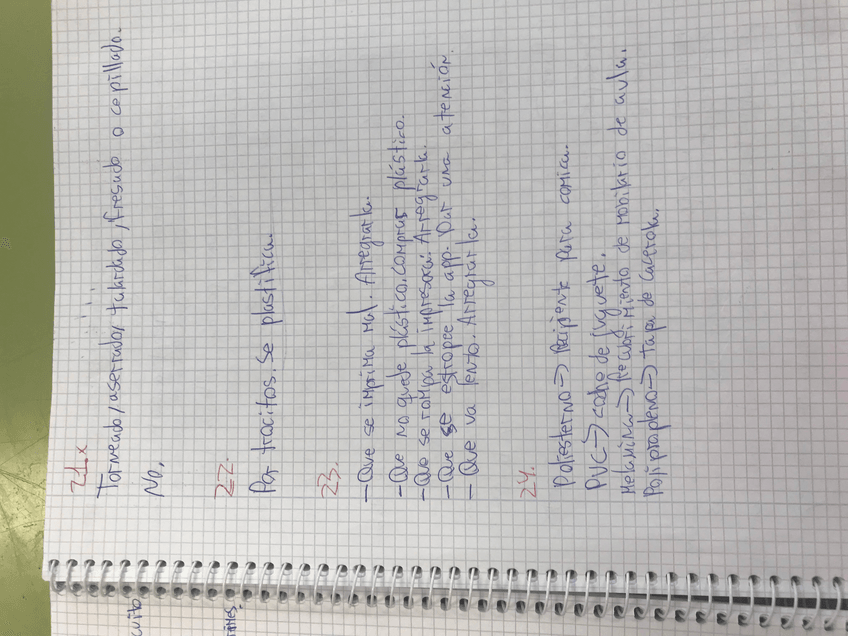 21.x
Torneado, aserrado, taladrado, fresado o cepillado.
No.
22.
Por trocitos. Se plastifica.
23.
- Que se imprima mal. Arreglarla.
- Que no quede plástico. Comprar plástico.
- Que se rompa la impresora. Arreglarla.
- Que se estropee la app. Dar una atención.
- Que va lento. Arreglarla.
24.
Poliesterno → Recipiente para comida.
PVC → coche de juguete.
Melamina → Recubrimiento de mobiliario de aula.
Polipropileno → tapa de cacerola.